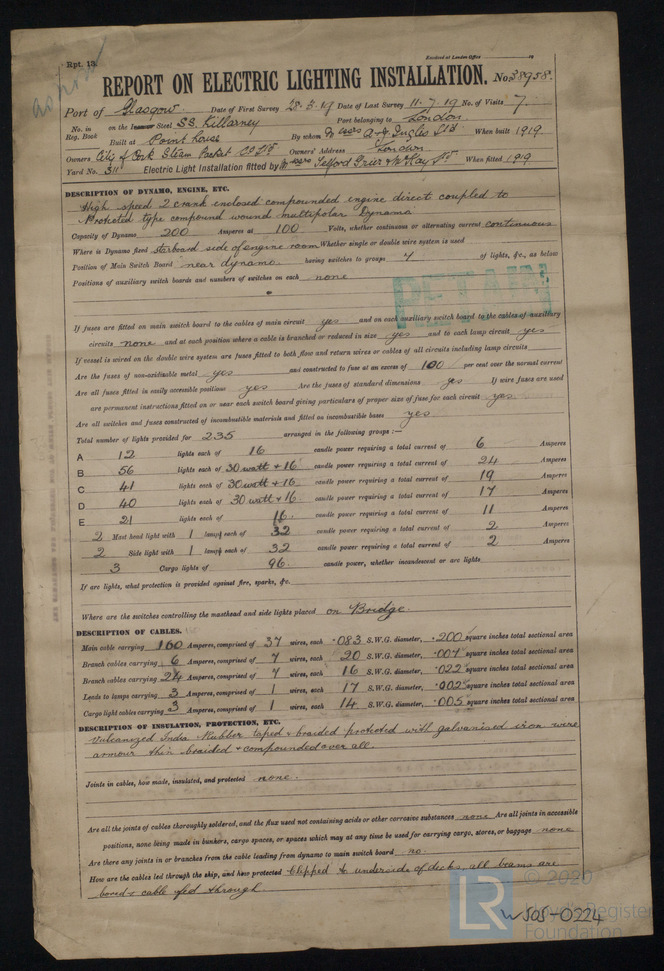 Rpt. 13.
Received at London Office 19
REPORT ON ELECTRIC LIGHTING INSTALLATION. No. 38958.
Port of Glasgow Date of First Survey 28.5.19 Date of Last Survey 11.7.19 No. of Visits 7.
No. in Reg. Book on the Iron or Steel S.S. Killarney Port belonging to London
Built at Point house By whom Messrs A & J Inglis Ltd When built 1919.
Owners City of Cork Steam Packet Co Ltd Owners' Address London
Yard No. 311 Electric Light Installation fitted by Messrs Telford Grier & McKay Ltd When fitted 1919
DESCRIPTION OF DYNAMO, ENGINE, ETC.
High speed 2 crank enclosed compounded engine direct coupled to
Protected type compound wound multipolar Dynamo
Capacity of Dynamo 200 Amperes at 100 Volts, whether continuous or alternating current continuous
Where is Dynamo fixed starboard side of engine room Whether single or double wire system is used
Position of Main Switch Board near dynamo. having switches to groups 4 of lights, &c., as below
Positions of auxiliary switch boards and numbers of switches on each none
RETAIN
If fuses are fitted on main switch board to the cables of main circuit yes and on each auxiliary switch board to the cables of auxiliary
circuits none and at each position where a cable is branched or reduced in size yes and to each lamp circuit yes
If vessel is wired on the double wire system are fuses fitted to both flow and return wires or cables of all circuits including lamp circuits
Are the fuses of non-oxidizable metal yes and constructed to fuse at an excess of 100 per cent over the normal current
Are all fuses fitted in easily accessible positions yes Are the fuses of standard dimensions yes If wire fuses are used
are permanent instructions fitted on or near each switch board giving particulars of proper size of fuse for each circuit yes.
Are all switches and fuses constructed of incombustible materials and fitted on incombustible bases yes
Total number of lights provided for 235 arranged in the following groups :—
A 12 lights each of 16 candle power requiring a total current of 6 Amperes
B 56 lights each of 30 watt + 16 candle power requiring a total current of 24 Amperes
C 41 lights each of 30 watt + 16 candle power requiring a total current of 19 Amperes
D 40 lights each of 30 watt + 16 candle power requiring a total current of 17 Amperes
E 21 lights each of 16. candle power requiring a total current of 11 Amperes
2 Mast head light with 1 lamps each of 32 candle power requiring a total current of 2 Amperes
2 Side light with 1 lamps each of 32 candle power requiring a total current of 2 Amperes
3 Cargo lights of 96. candle power, whether incandescent or arc lights
If arc lights, what protection is provided against fire, sparks, &c.
Where are the switches controlling the masthead and side lights placed on Bridge.
DESCRIPTION OF CABLES.
Main cable carrying 160 Amperes, comprised of 37 wires, each .083 S.W.G. diameter, .200 square inches total sectional area
Branch cables carrying 6 Amperes, comprised of 7 wires, each 20 S.W.G. diameter, .007 square inches total sectional area
Branch cables carrying 24 Amperes, comprised of 7 wires, each 16 S.W.G. diameter, .022 square inches total sectional area
Leads to lamps carrying 3 Amperes, comprised of 1 wires, each 17 S.W.G. diameter, .002 square inches total sectional area
Cargo light cables carrying 3 Amperes, comprised of 1 wires, each 14 S.W.G. diameter, .005 square inches total sectional area
DESCRIPTION OF INSULATION, PROTECTION, ETC.
Vulcanized India Rubber taped & braided protected with galvanised iron wire
armour then braided & compounded over all.
Joints in cables, how made, insulated, and protected none.
Are all the joints of cables thoroughly soldered, and the flux used not containing acids or other corrosive substances none Are all joints in accessible
positions, none being made in bunkers, cargo spaces, or spaces which may at any time be used for carrying cargo, stores, or baggage none
Are there any joints in or branches from the cable leading from dynamo to main switch board no.
How are the cables led through the ship, and how protected clipped to underside of decks, all beams are
bored & cable led through
LR
© 2020
Lloyd's Register
Foundation
W505-0224